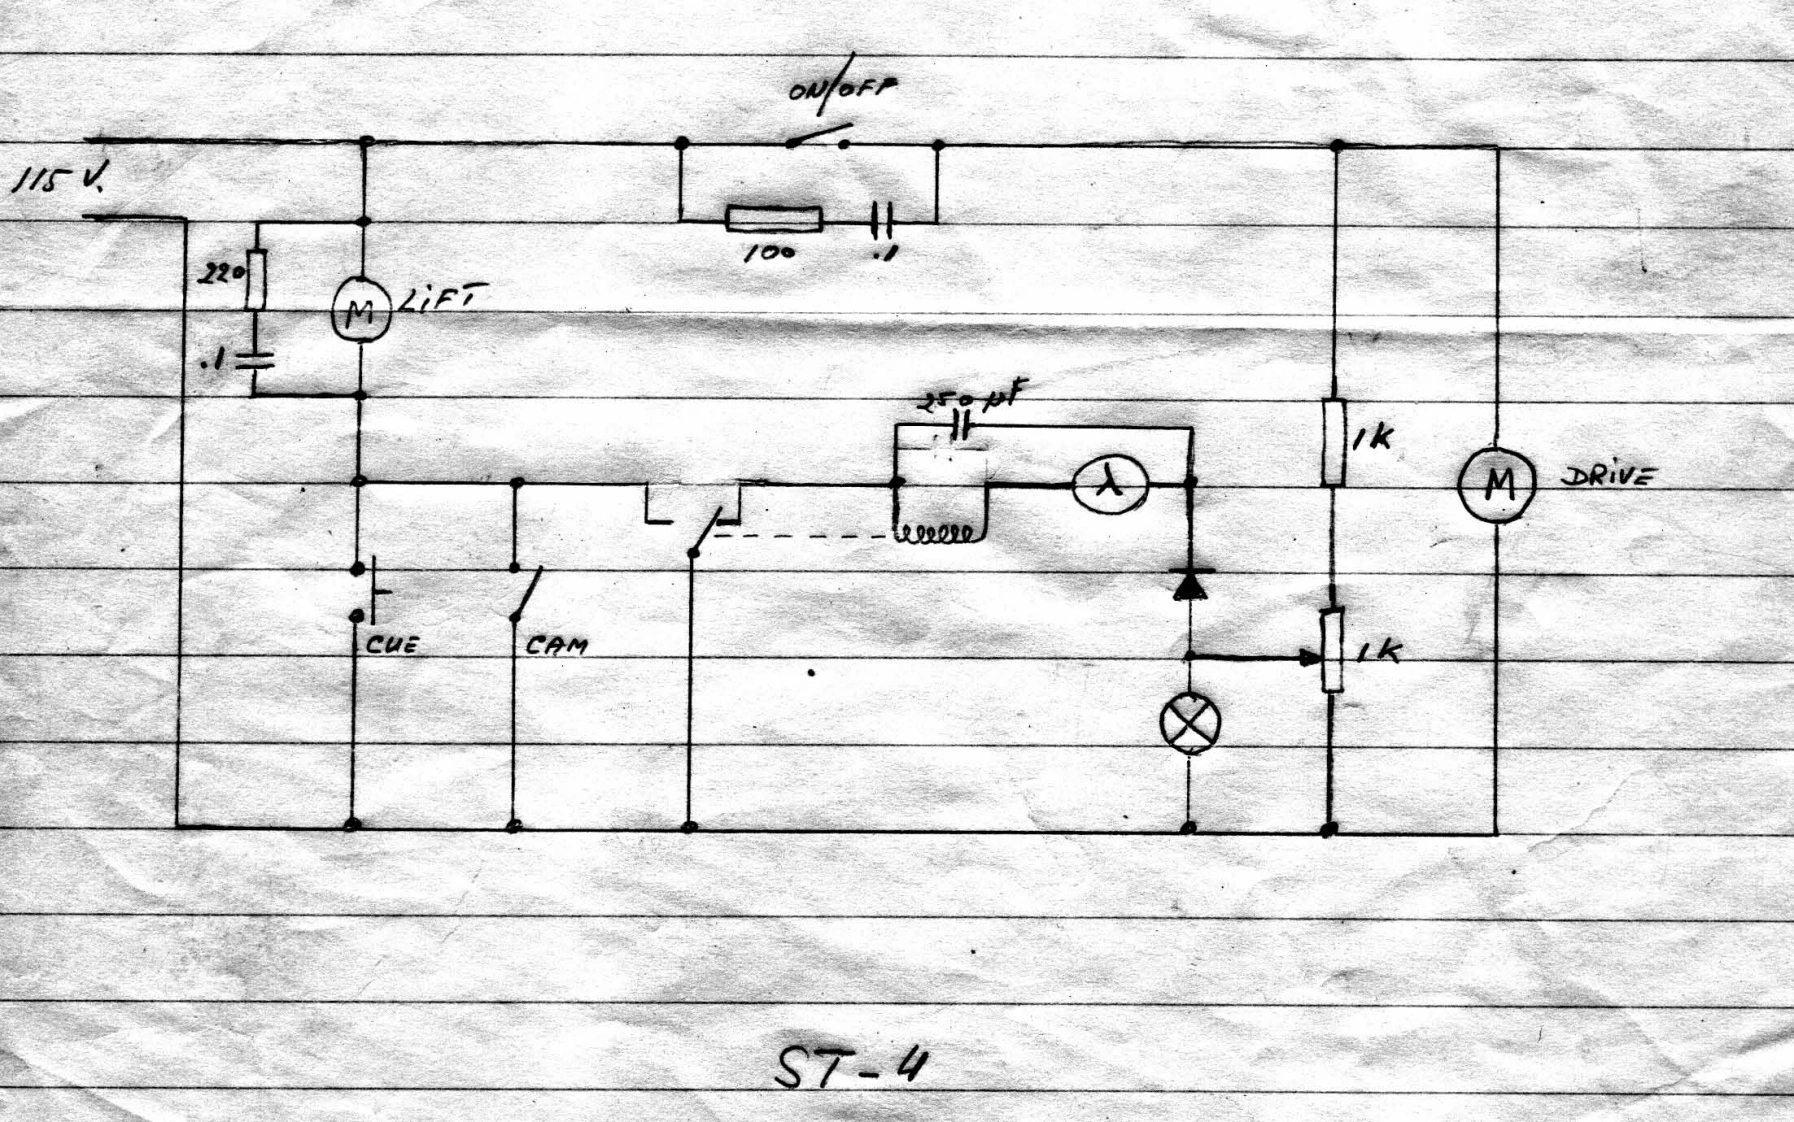 ON/OFF
115 V.
100
.1
220
M
LIFT
.1
250 µF
1K
λ
M
DRIVE
CUE
CAM
1K
ST-4